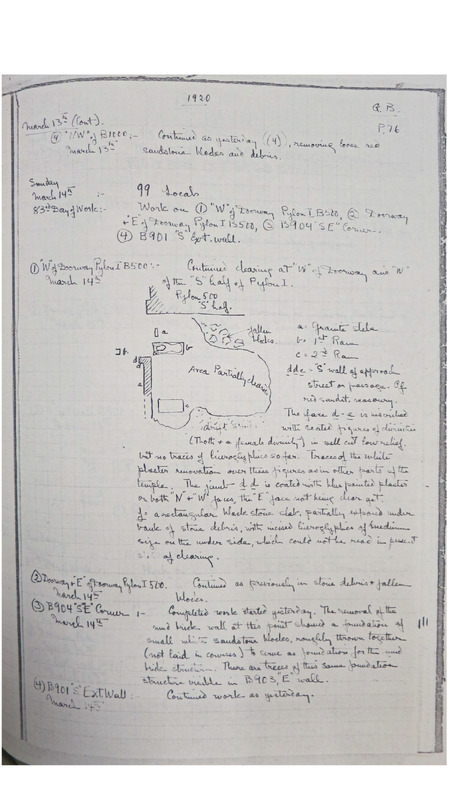 1920
G.B.
P.76
March 13th (Cont.)
(4) "NW" of B1000:- Continued as yesterday ((4)), removing loose red
March 13th sandstone blocks and debris.
Sunday
March 14th :- 99 Locals
83rd Day of Work:- Work on (1) "W" of Doorway Pylon I B500, (2) Doorway
+ "E" of Doorway Pylon I B500, (3) B904 "SE" Corner.
(4) B901 "S" Ext. wall.
(1) "W" of Doorway Pylon I B500:- Continued clearing at "W" of Doorway and "W"
March 14th of the "S" half of Pylon I.
Pylon 500
"S" half.
fallen
blocks.
a
b
Area Partially cleared
c
drift
a = Granite slab
b = 1st Ram
c = 2nd Ram
d d e = "S" wall of approach
street or passage. Of
red sandst. masonry.
The face d-e is inscribed
with seated figures of divinities
(Thoth + a female divinity) in well cut low relief,
but no traces of hieroglyphics so far. Traces of the white
plaster renovation over these figures as in other parts of the
temple. The jamb d d is coated with blue painted plaster
on both "N" + "W" faces, the "E" face not being clear yet.
f = a rectangular black stone slab, partially exposed under
bank of stone debris, with incised hieroglyphics of medium
size on the under side, which could not be read in present
of clearing.
(2) Doorway + "E" of Doorway Pylon I 500. Continued as previously in stone debris + fallen
March 14th blocks.
(3) B904 "SE" Corner :- Completed work started yesterday. The removal of the
March 14th mud brick wall at this point showed a foundation of
small white sandstone blocks, roughly thrown together
(not laid in courses) to serve as foundation for the mud
brick structure. There are traces of this same foundation
structure visible in B903, "E" wall.
(4) B901 "S" Ext Wall :- Continued work as yesterday.
March 14th